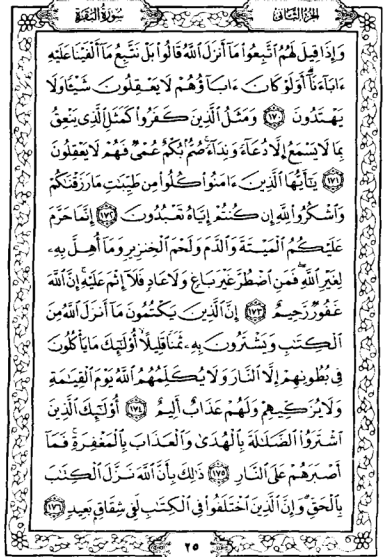 الجزء الثانى سورة البقرة
وَإِذَا قِيلَ لَهُمُ اتَّبِعُوا مَا أَنزَلَ اللَّهُ قَالُوا بَلْ نَتَّبِعُ مَا أَلْفَيْنَا عَلَيْهِ
ءَابَاءَنَا أَوَلَوْ كَانَ ءَابَاؤُهُمْ لَا يَعْقِلُونَ شَيْئًا وَلَا
يَهْتَدُونَ ١٧٠ وَمَثَلُ الَّذِينَ كَفَرُوا كَمَثَلِ الَّذِي يَنْعِقُ
بِمَا لَا يَسْمَعُ إِلَّا دُعَاءً وَنِدَاءً صُمٌّ بُكْمٌ عُمْىٌ فَهُمْ لَا يَعْقِلُونَ
١٧١ يَٰأَيُّهَا الَّذِينَ ءَامَنُوا كُلُوا مِن طَيِّبَٰتِ مَا رَزَقْنَٰكُمْ
وَاشْكُرُوا لِلَّهِ إِن كُنتُمْ إِيَّاهُ تَعْبُدُونَ ١٧٢ إِنَّمَا حَرَّمَ
عَلَيْكُمُ الْمَيْتَةَ وَالدَّمَ وَلَحْمَ الْخِنزِيرِ وَمَا أُهِلَّ بِهِ
لِغَيْرِ اللَّهِ فَمَنِ اضْطُرَّ غَيْرَ بَاغٍ وَلَا عَادٍ فَلَا إِثْمَ عَلَيْهِ إِنَّ اللَّهَ
غَفُورٌ رَّحِيمٌ ١٧٣ إِنَّ الَّذِينَ يَكْتُمُونَ مَا أَنزَلَ اللَّهُ مِنَ
الْكِتَٰبِ وَيَشْتَرُونَ بِهِ ثَمَنًا قَلِيلًا أُولَٰئِكَ مَا يَأْكُلُونَ
فِي بُطُونِهِمْ إِلَّا النَّارَ وَلَا يُكَلِّمُهُمُ اللَّهُ يَوْمَ الْقِيَٰمَةِ
وَلَا يُزَكِّيهِمْ وَلَهُمْ عَذَابٌ أَلِيمٌ ١٧٤ أُولَٰئِكَ الَّذِينَ
اشْتَرَوُا الضَّلَٰلَةَ بِالْهُدَىٰ وَالْعَذَابَ بِالْمَغْفِرَةِ فَمَا
أَصْبَرَهُمْ عَلَى النَّارِ ١٧٥ ذَٰلِكَ بِأَنَّ اللَّهَ نَزَّلَ الْكِتَٰبَ
بِالْحَقِّ وَإِنَّ الَّذِينَ اخْتَلَفُوا فِي الْكِتَٰبِ لَفِي شِقَاقٍ بَعِيدٍ ١٧٦
٢٥